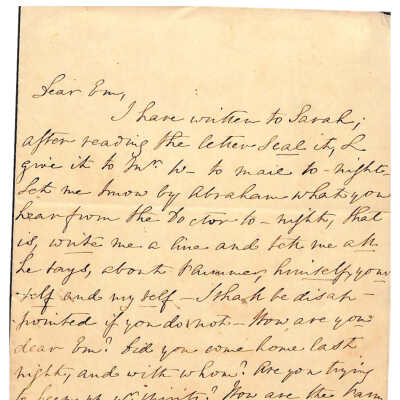 Dear Em,
I have written to Sarah;
after reading the letter Seal it, &
give it to Mrs. W– to mail to-night.
Let me know by Abraham what you
hear from the Doctor to-night, that
is, write me a line and tell me all
he says, about himself, your
-self and my self – I shall be disap-
pointed if you do not – How are you
dear Em? Did you come home last
night, and with whom? Are you trying
to keep up spirits? How are the